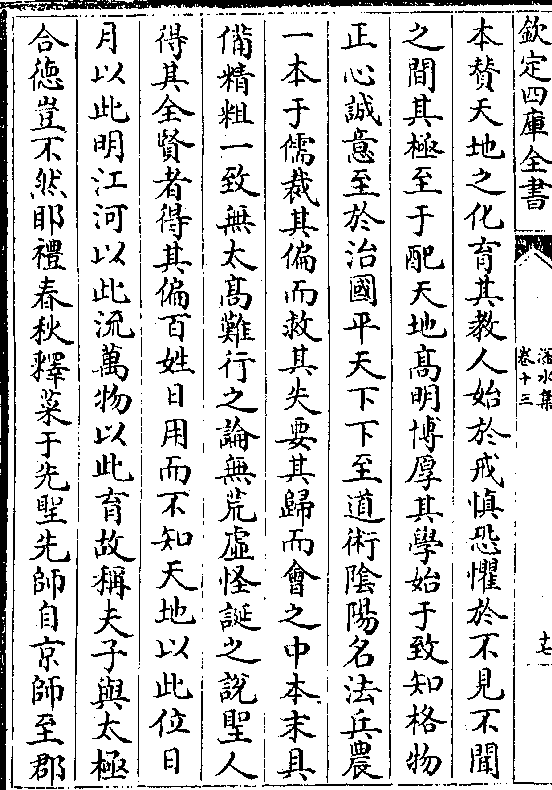 欽定四庫全書
滏水集
卷十三
十七
本賛天地之化育其教人始於戒慎恐懼於不見不聞
之間其極至于配天地髙明博厚其學始于致知格物
正心誠意至於治國平天下下至道術隂陽名法兵農
一本于儒裁其偏而救其失要其歸而會之中本末具
備精粗一致無太髙難行之論無荒虚怪誕之說聖人
得其全賢者得其偏百姓日用而不知天地以此位日
月以此明江河以此流萬物以此育故稱夫子與太極
合徳豈不然耶禮春秋釋菜于先聖先師自京師至郡